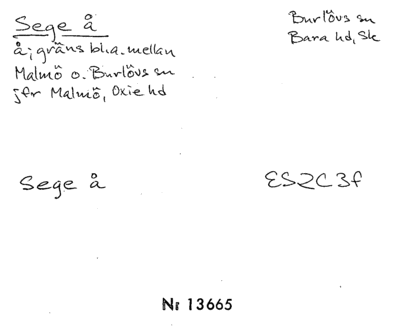 Sege å
å; gräns bl.a. mellan
Malmö o. Burlövs sn
jfr Malmö, Oxie hd
Burlövs sn
Bara hd, Sk
Sege å
ES2C3f
Nr 13665